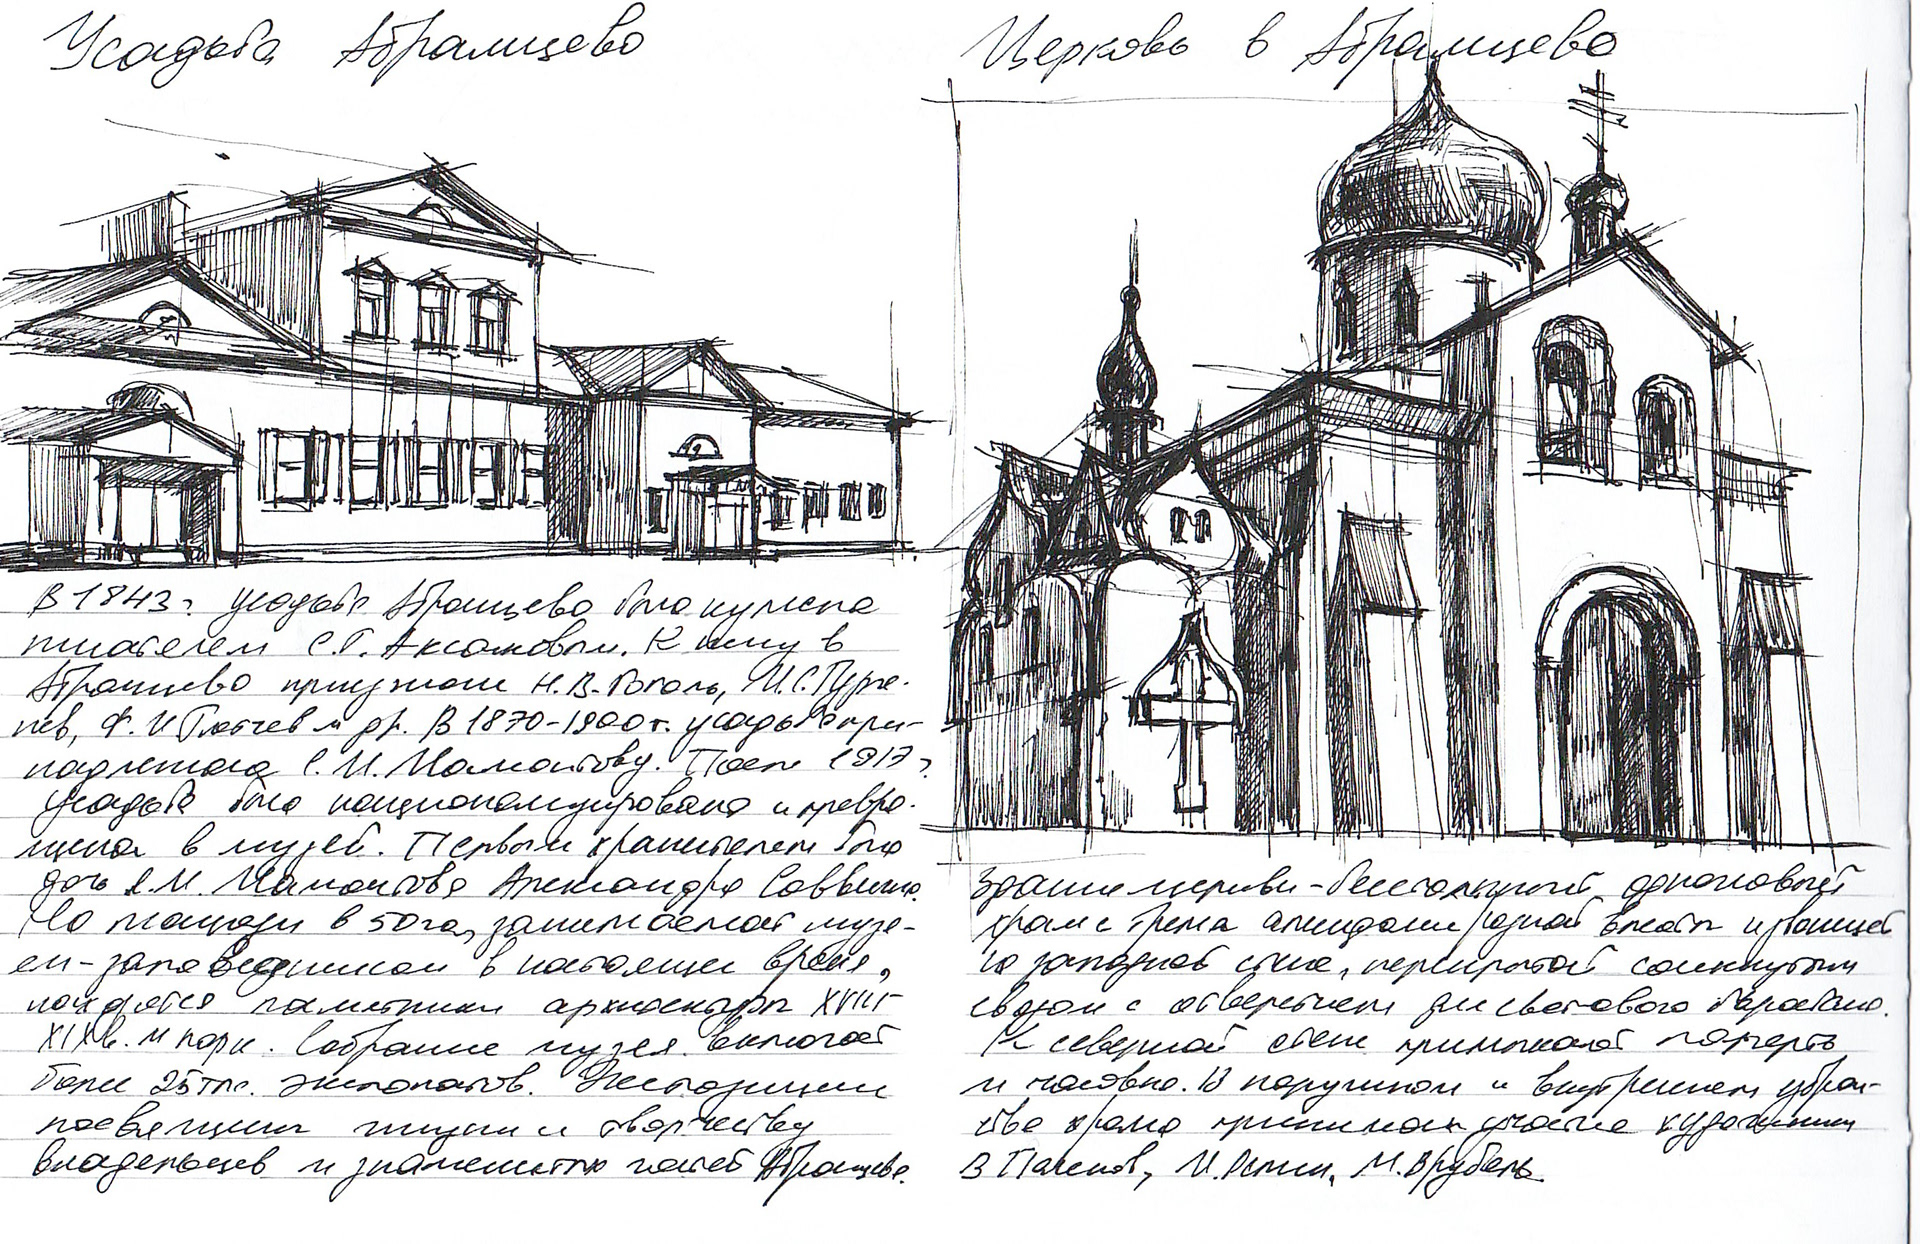 Усадьба Абрамцево
В 1843 г. усадьба Абрамцево была куплена
писателем С.Т. Аксаковым. К нему в
Абрамцево приезжали Н.В. Гоголь, И.С. Турге-
нев, Ф.И Тютчев и др. В 1870-1900 г. усадьба при-
надлежала С.И. Мамонтову. После 1917 г.
усадьба была национализирована и превра-
щена в музей. Первым хранителем была
дочь С.И. Мамонтова Александра Саввична.
На площади в 50 га, занимаемой музе-
ем-заповедником в настоящее время,
находятся памятники архитектуры XVIII-
XIX в. и парк. Собрание музея включает
более 25 тыс. экспонатов. Экспозиции
посвящены жизни и творчеству
владельцев и знаменитых гостей Абрамцево.
Церковь в Абрамцево
Здание церкви - бесстолпный одноглавый
храм с тремя апсидами и звонницей
по западной стене, перекрытой сомкнутым
сводом с отверстием для светового барабана.
К северной стене примыкают паперть
и часовня. В наружном и внутреннем убран-
стве храма принимали участие художники
В Поленов, И. Репин, М. Врубель